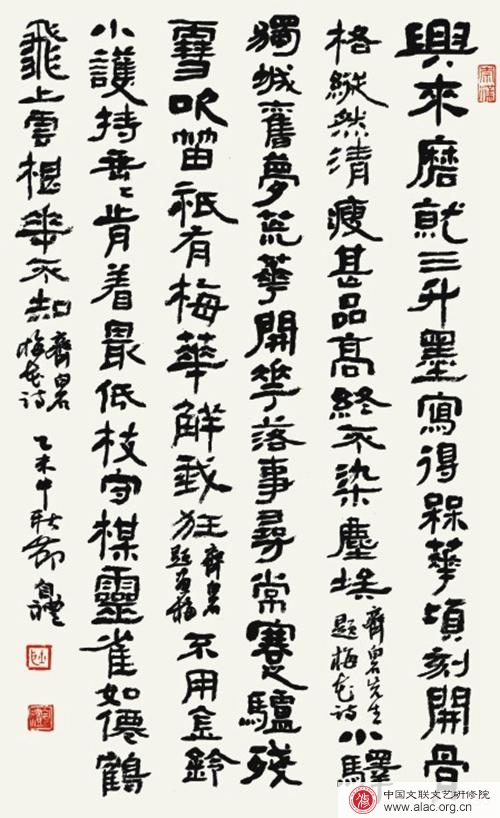 興來磨就三升墨寫得槑華頃刻開骨
格縱然清瘦甚品高終不染塵埃齊白石先生題梅花詩小驛
獨城舊夢荒華開花落事尋常蹇驢殘
雪吹笛祇有梅華解我狂齊白石題畫梅不用金鈴
小護持垂垂肯着最低枝守楳靈雀如僊鶴
飛上雲華不知齊白石梅花詩乙未中秋節
中国文联文艺研修院
www.alac.org.cn